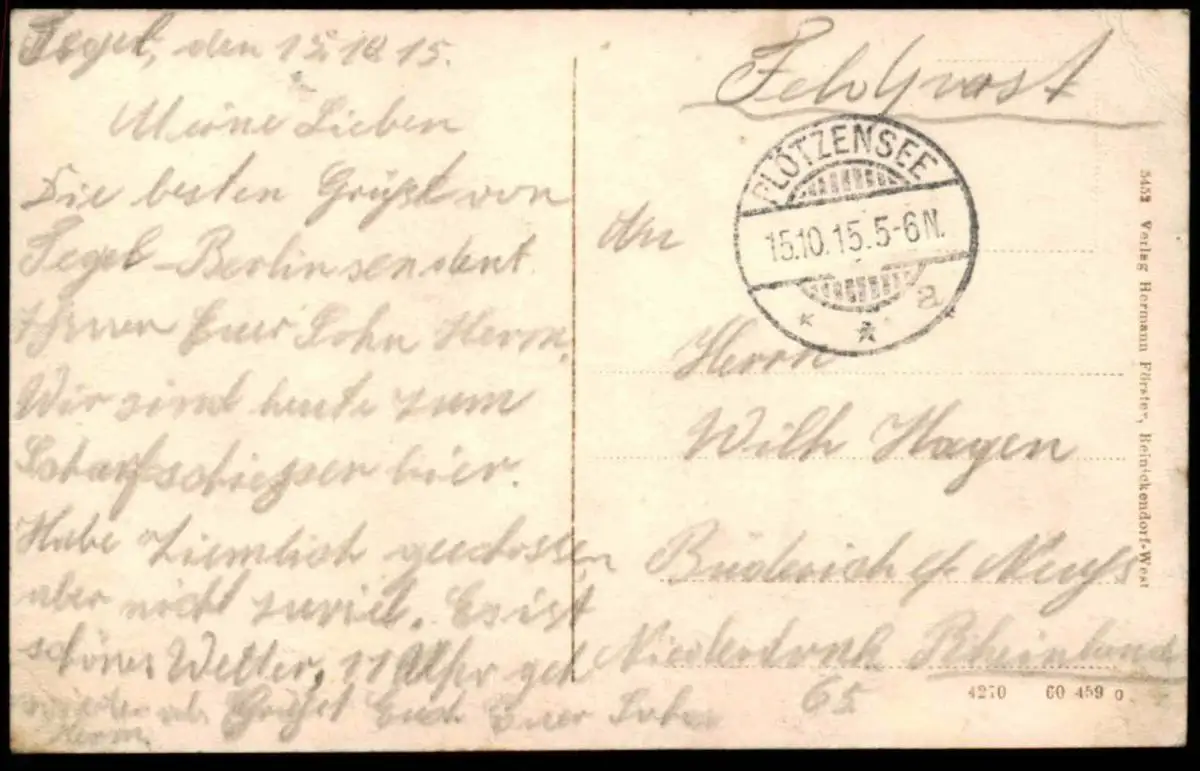 Tegel, den 15.10.15.
Meine Lieben
Die besten Grüße von
Tegel-Berlin sendent
Ihnen Euer Sohn Herm.
Wir sind heute zum
Scharfschießen hier.
Habe ziemlich geschossen
aber nicht zuviel. Es ist
schönes Wetter, 11 Uhr geht
Grüßt Euch Euer Sohn
Herm.
Feldpost
PLÖTZENSEE
15.10.15.5-6N.
* * a
An
Herrn
Wilh Hagen
Büderich b/ Neuß
Niederdonk Rheinland
65
5452 Verlag Hermann Förster, Reinickendorf-West
4270 60 459 o